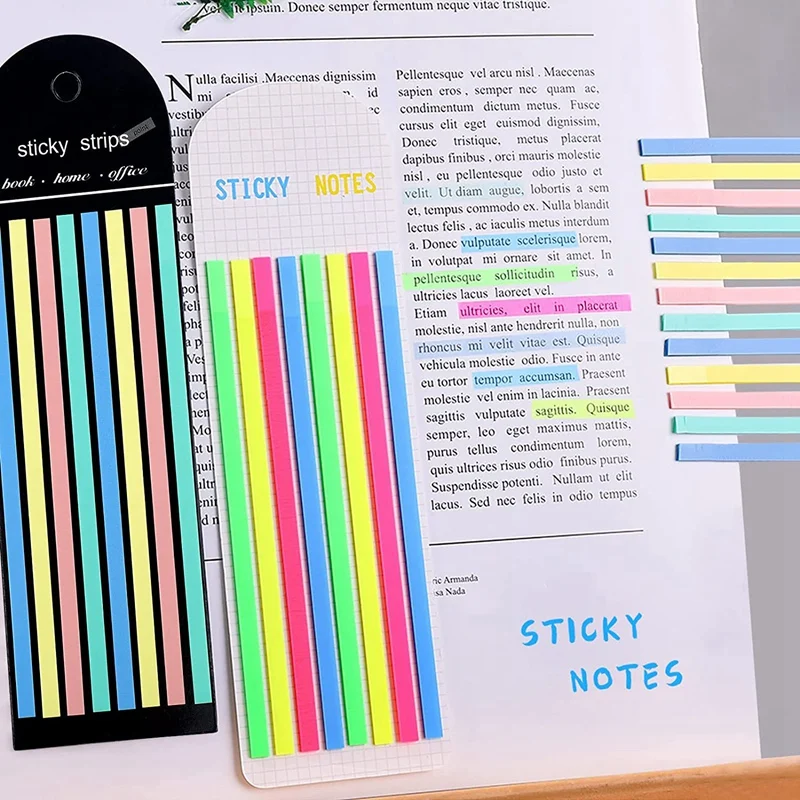 vel ipsum. Donec semper fermentum neque vitae tristique.
sticky strips
point
book · home · office
STICKY NOTES
Nulla facilisi .Maecenas dignissim
mi
vestibu
ultri
Pellentesque vel arcu nisl . Maecenas
sapien eros , semper nec quam ac,
condimentum dictum metus. Fusce
cursus elit eget euismod dignissim,
Donec tristique, metus placerat
dapibus finibus , orci mauris molestie
nisl , eu pellentesque odio justo et
velit. Ut diam augue, lobortis a sem
et, tempus commodo ex. Nulla blandit
lectus felis , ac iaculis metus interdum
a. Donec vulputate scelerisque lorem,
in volutpat mi ornare sit amet. In
pellentesque sollicitudin risus, a
ultricies lacus laoreet vel.
Etiam ultricies, elit in placerat
molestie, nisl ante hendrerit nulla, non
rhoncus mi velit vitae est. Quisque
vehicula molestie odio. Fusce in ante
eu tortor tempor accumsan. Praesent
molestie vel enim in lacinia. Praesent
sagittis vulputate sagittis. Quisque
semper, leo eget maximus mattis,
purus tellus condimentum lorem,
quis ultrices risus odio finibus purus.
Suspendisse potenti. Nullam ut elit
lacus. Sed nec felis in odio tempus
ric Armanda
sa Nada
STICKY
NOTES